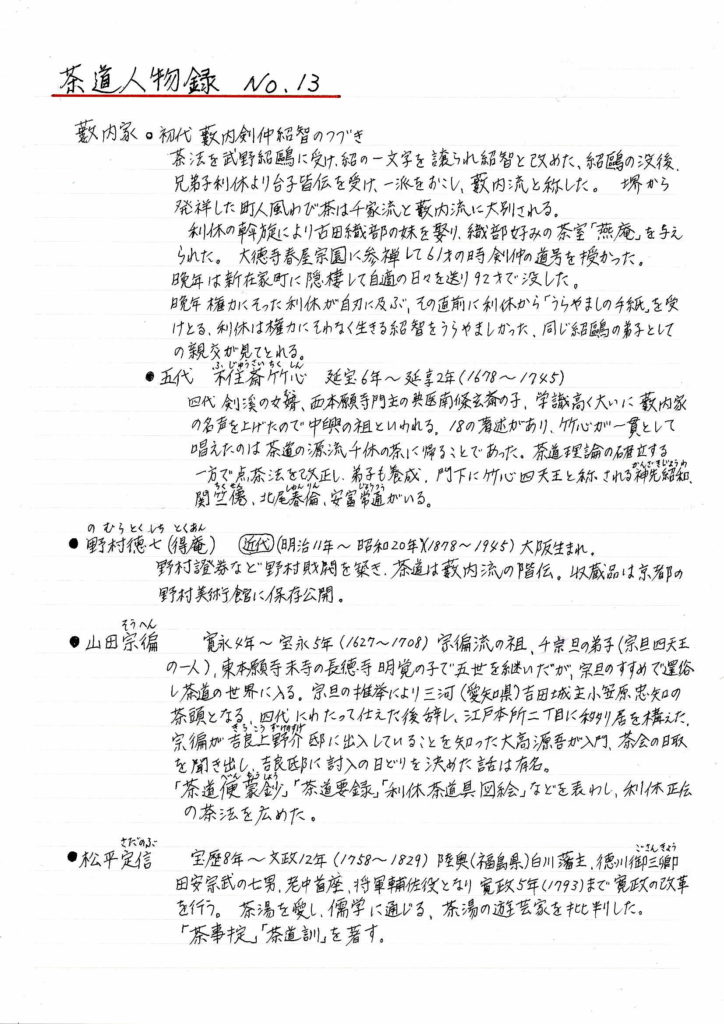 茶道人物録 No.13
藪内家 • 初代 藪内剣仲紹智のつづき
茶法を武野紹鷗に受け、紹の一文字を譲られ紹智と改めた、紹鷗の没後、
兄弟子利休より台子皆伝を受け、一派をおこし、藪内流と称した。 堺から
発祥した町人風わび茶は千家流と藪内流に大別される。
利休の斡旋により古田織部の妹を娶り、織部好みの茶室「燕庵」を与え
られた。 大徳寺春屋宗園に参禅して61才の時剣仲の道号を授かった。
晩年は新在家町に隠棲して自適の日々を送り92才で没した。
晩年権力にそった利休が自刃に及ぶ、その直前に利休から「うらやましの手紙」を受
けとる、利休は権力にそわなく生きる紹智をうらやましかった、同じ紹鷗の弟子として
の親交が見てとれる。
ふじゅうさいちくしん
• 五代 不住斎竹心 延宝6年～延享2年(1678～1745)
四代 剣渓の女婿、西本願寺門主の典医南條玄斎の子、学識高く大いに藪内家
の名声を上げたので中興の祖といわれる。18の著述があり、竹心が一貫として
唱えたのは茶道の源流千休の茶に帰ることであった。茶道理論の確立する
一方で点茶法を改正し、弟子も養成、門下に竹心四天王と称される神先紹和、
関竺僊、北尾春倫、安富常通がいる。
のむらとくしち とくあん
• 野村徳七(得庵) 近代(明治11年～昭和20年)(1878～1945) 大阪生まれ.
野村證券など野村財閥を築き、茶道は藪内流の皆伝。収蔵品は京都の
野村美術館に保存公開。
そうへん
• 山田宗徧 寛永4年～宝永5年(1627～1708) 宗徧流の祖、千宗旦の弟子(宗旦四天王
の一人)、東本願寺末寺の長徳寺明覚の子で五世を継いだが、宗旦のすすめで還俗
し茶道の世界に入る。宗旦の推挙により三河(愛知県)吉田城主小笠原忠知の
茶頭となる、四代にわたって仕えた後辞し、江戸本所二丁目に移り居を構えた.
宗徧が吉良上野介邸に出入していることを知った大高源吾が入門、茶会の日取
を聞き出し、吉良邸に討入の日どりを決めた話は有名。
「茶道便蒙鈔」「茶道要録」「利休茶道具図絵」などを表わし、利休正伝
の茶法を広めた。
さだのぶ
• 松平定信 宝歴8年～文政12年(1758～1829) 陸奥(福島県)白川藩主、徳川御三卿
田安宗武の七男、老中首座、将軍輔佐役となり寛政5年(1793)まで寛政の改革
を行う。 茶湯を愛し、儒学に通じる、茶湯の遊芸家を批判した。
「茶事掟」「茶道訓」を著す。